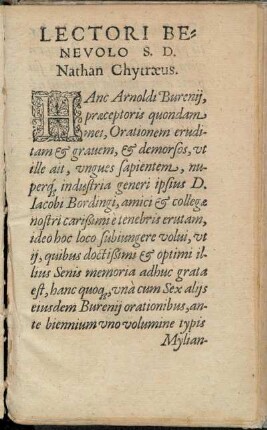 LECTORI BE=
NEVOLO S. D.
Nathan Chytræus.
HAnc Arnoldi Burenij,
præceptoris quondam
mei, Orationem erudi-
tam & grauem, & demorsos, vt
ille ait, vngues sapientem, nu-
perq́, industria generi ipsius D.
Iacobi Bordingi, amici & collegæ
nostri carißimi è tenebris erutam,
ideo hoc loco subiungere volui, vt
ij, quibus doctißimi & optimi il-
lius Senis memoria adhuc grata
est, hanc quoq́, vnà cum Sex alijs
eiusdem Burenij orationibus, an-
te biennium vno volumine typis
Mylian-